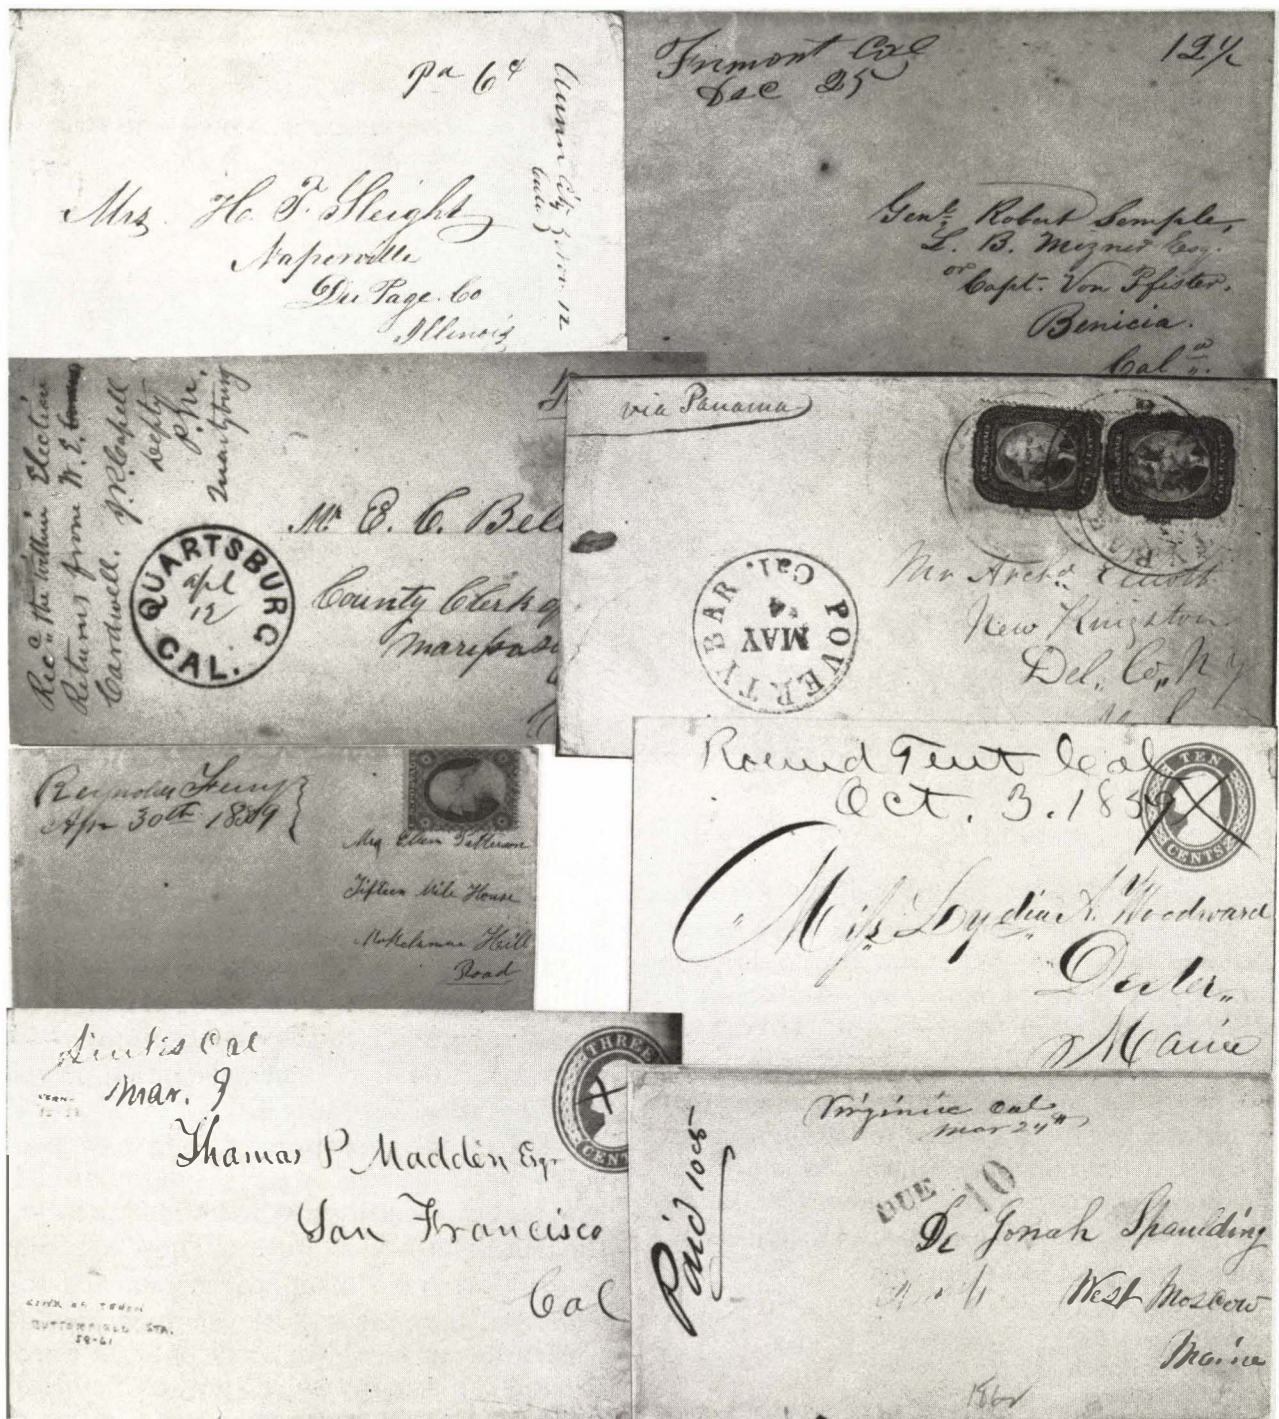 pa 6¢
Mrs. H. F. Sleight
Naperville
Du Page. Co
Illinois
City
Cala } Nov. 12
Fremont Cal
Dec 25
12½
Genl. Robert Semple,
L. B. Mizner Esq.
or Capt. Von Pfister.
Benicia.
Cala.
Recd the within Election
Returns from W. E.
Cardwell. J. R. Capell
Depty
P.M.
QUARTSBURG
apl
12
CAL.
Mr E. C. Bell
County Clerk of
Mariposa
via Panama
POVERTY BAR, Cal.
MAY
4
Mr Archd Elliott
New Kingston
Del,, Co,, N Y
Reynolds Ferry
Apr 30th 1859
Mrs Ellen Patterson
Fifteen Mile House
Mokelumne Hill
Road
Round Tent Cal
Oct. 3. 1859
TEN
CENTS
Miss Lydia A. Woodward
Dexter,,
Maine
Cal
Mar. 9
THREE
CENT
Thomas P Madden Esqr
San Francisco
Cal
BUTTERFIELD STA.
58-61
Virginia Cal
Mar 24"
Paid 10cts
DUE 10
Dr Jonah Spaulding
West Moscow
Maine